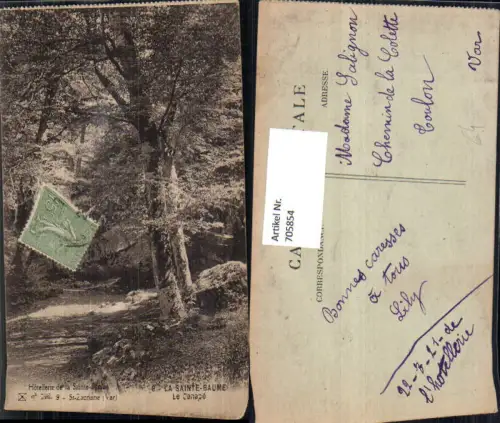 Hôtellerie de la Sainte-Baume
St-Zacharie (Var)
LA SAINTE-BAUME
Le Canapé
ALE
CA
CORRESPONDANCE
ADRESSE
Artikel Nr.
705854
Madame Salignon
Chemin de la Colette
Toulon
Var
Bonnes caresses
à tous
Lily
de
l'hotellerie